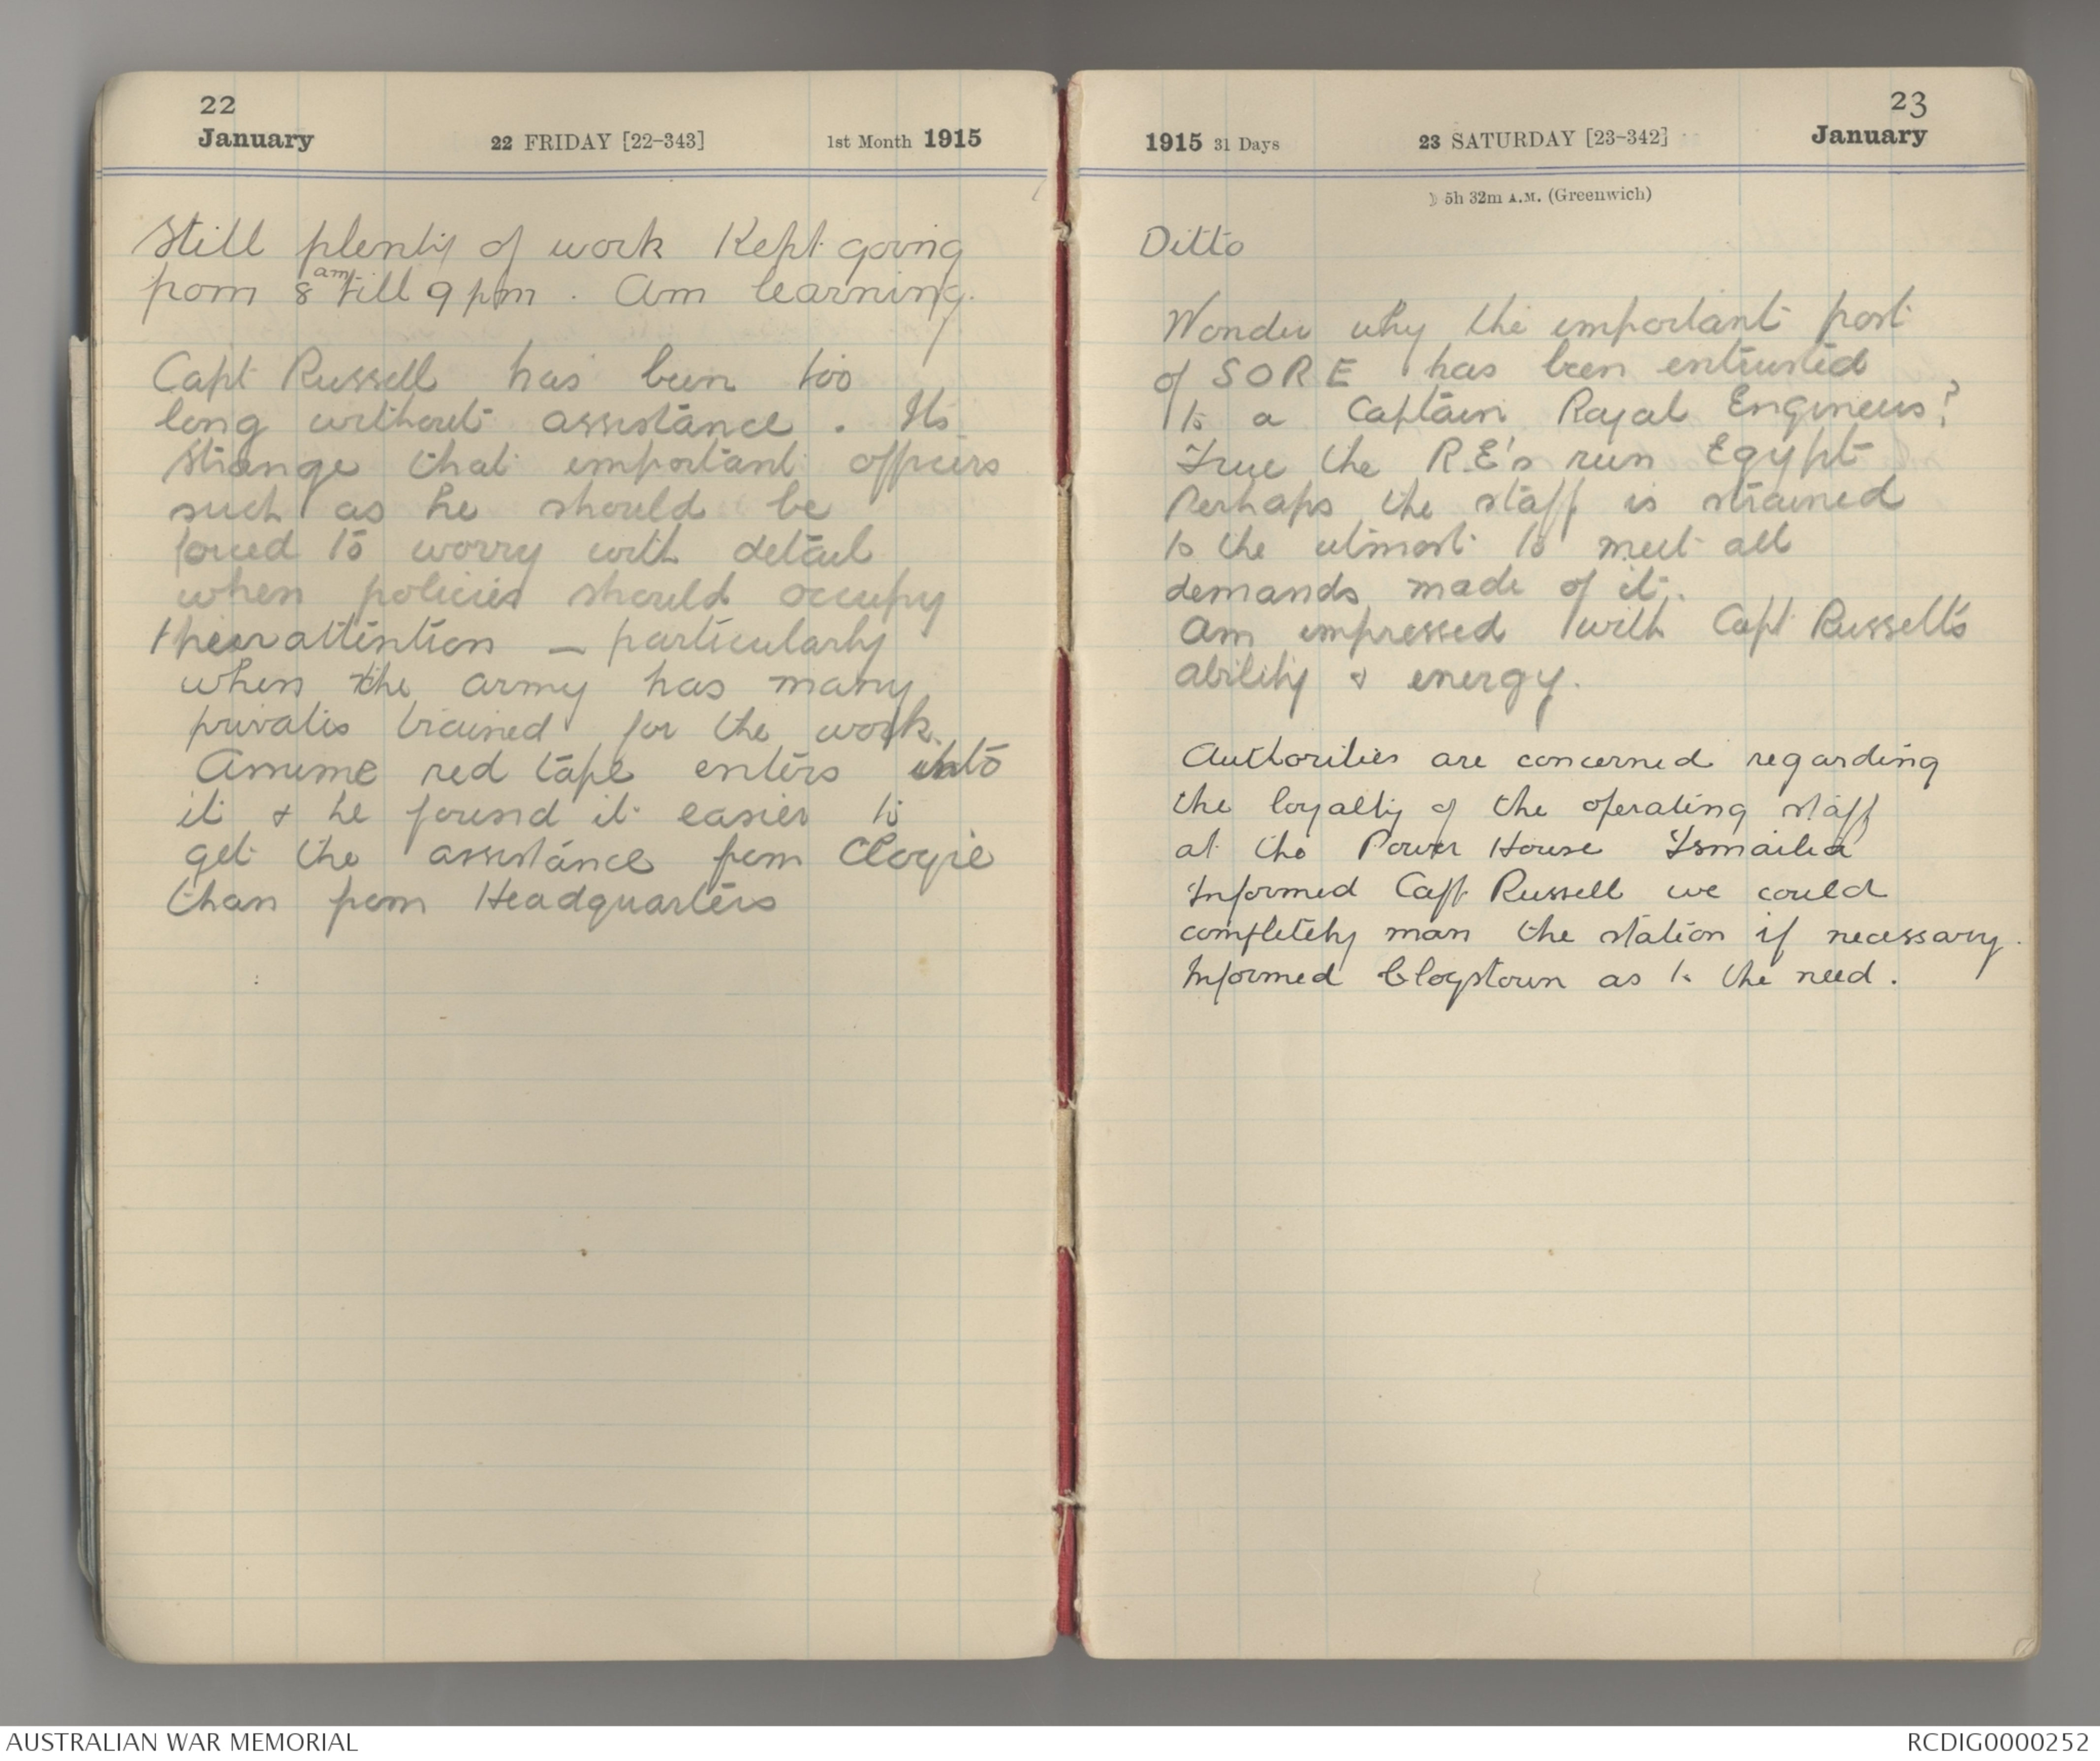 22
January 22 FRIDAY [22-343] 1st Month 1915
Still plenty of work Kept going
from 8 am till 9 pm. Am learning.
Capt Russell has been too
long without assistance. Its
strange that important officers
such as he should be
forced to worry with detail
when policies should occupy
their attention — particularly
when the army has many
privates trained for the work.
Assume red tape enters into
it & he found it easier to
get the assistance from Clogie
than from Headquarters
23
1915 31 Days 23 SATURDAY [23-342] January
☽ 5h 32m A.M. (Greenwich)
Ditto
Wonder why the important post
of SORE has been entrusted
to a Captain Royal Engineers?
True the R.E's run Egypt
Perhaps the staff is strained
to the utmost to meet all
demands made of it.
Am impressed with Capt Russell's
ability & energy.
Authorities are concerned regarding
the loyalty of the operating staff
at the Power House Ismailia
Informed Capt Russell we could
completely man the station if necessary.
Informed Clogstoun as to the need.
AUSTRALIAN WAR MEMORIAL
RCDIG0000252